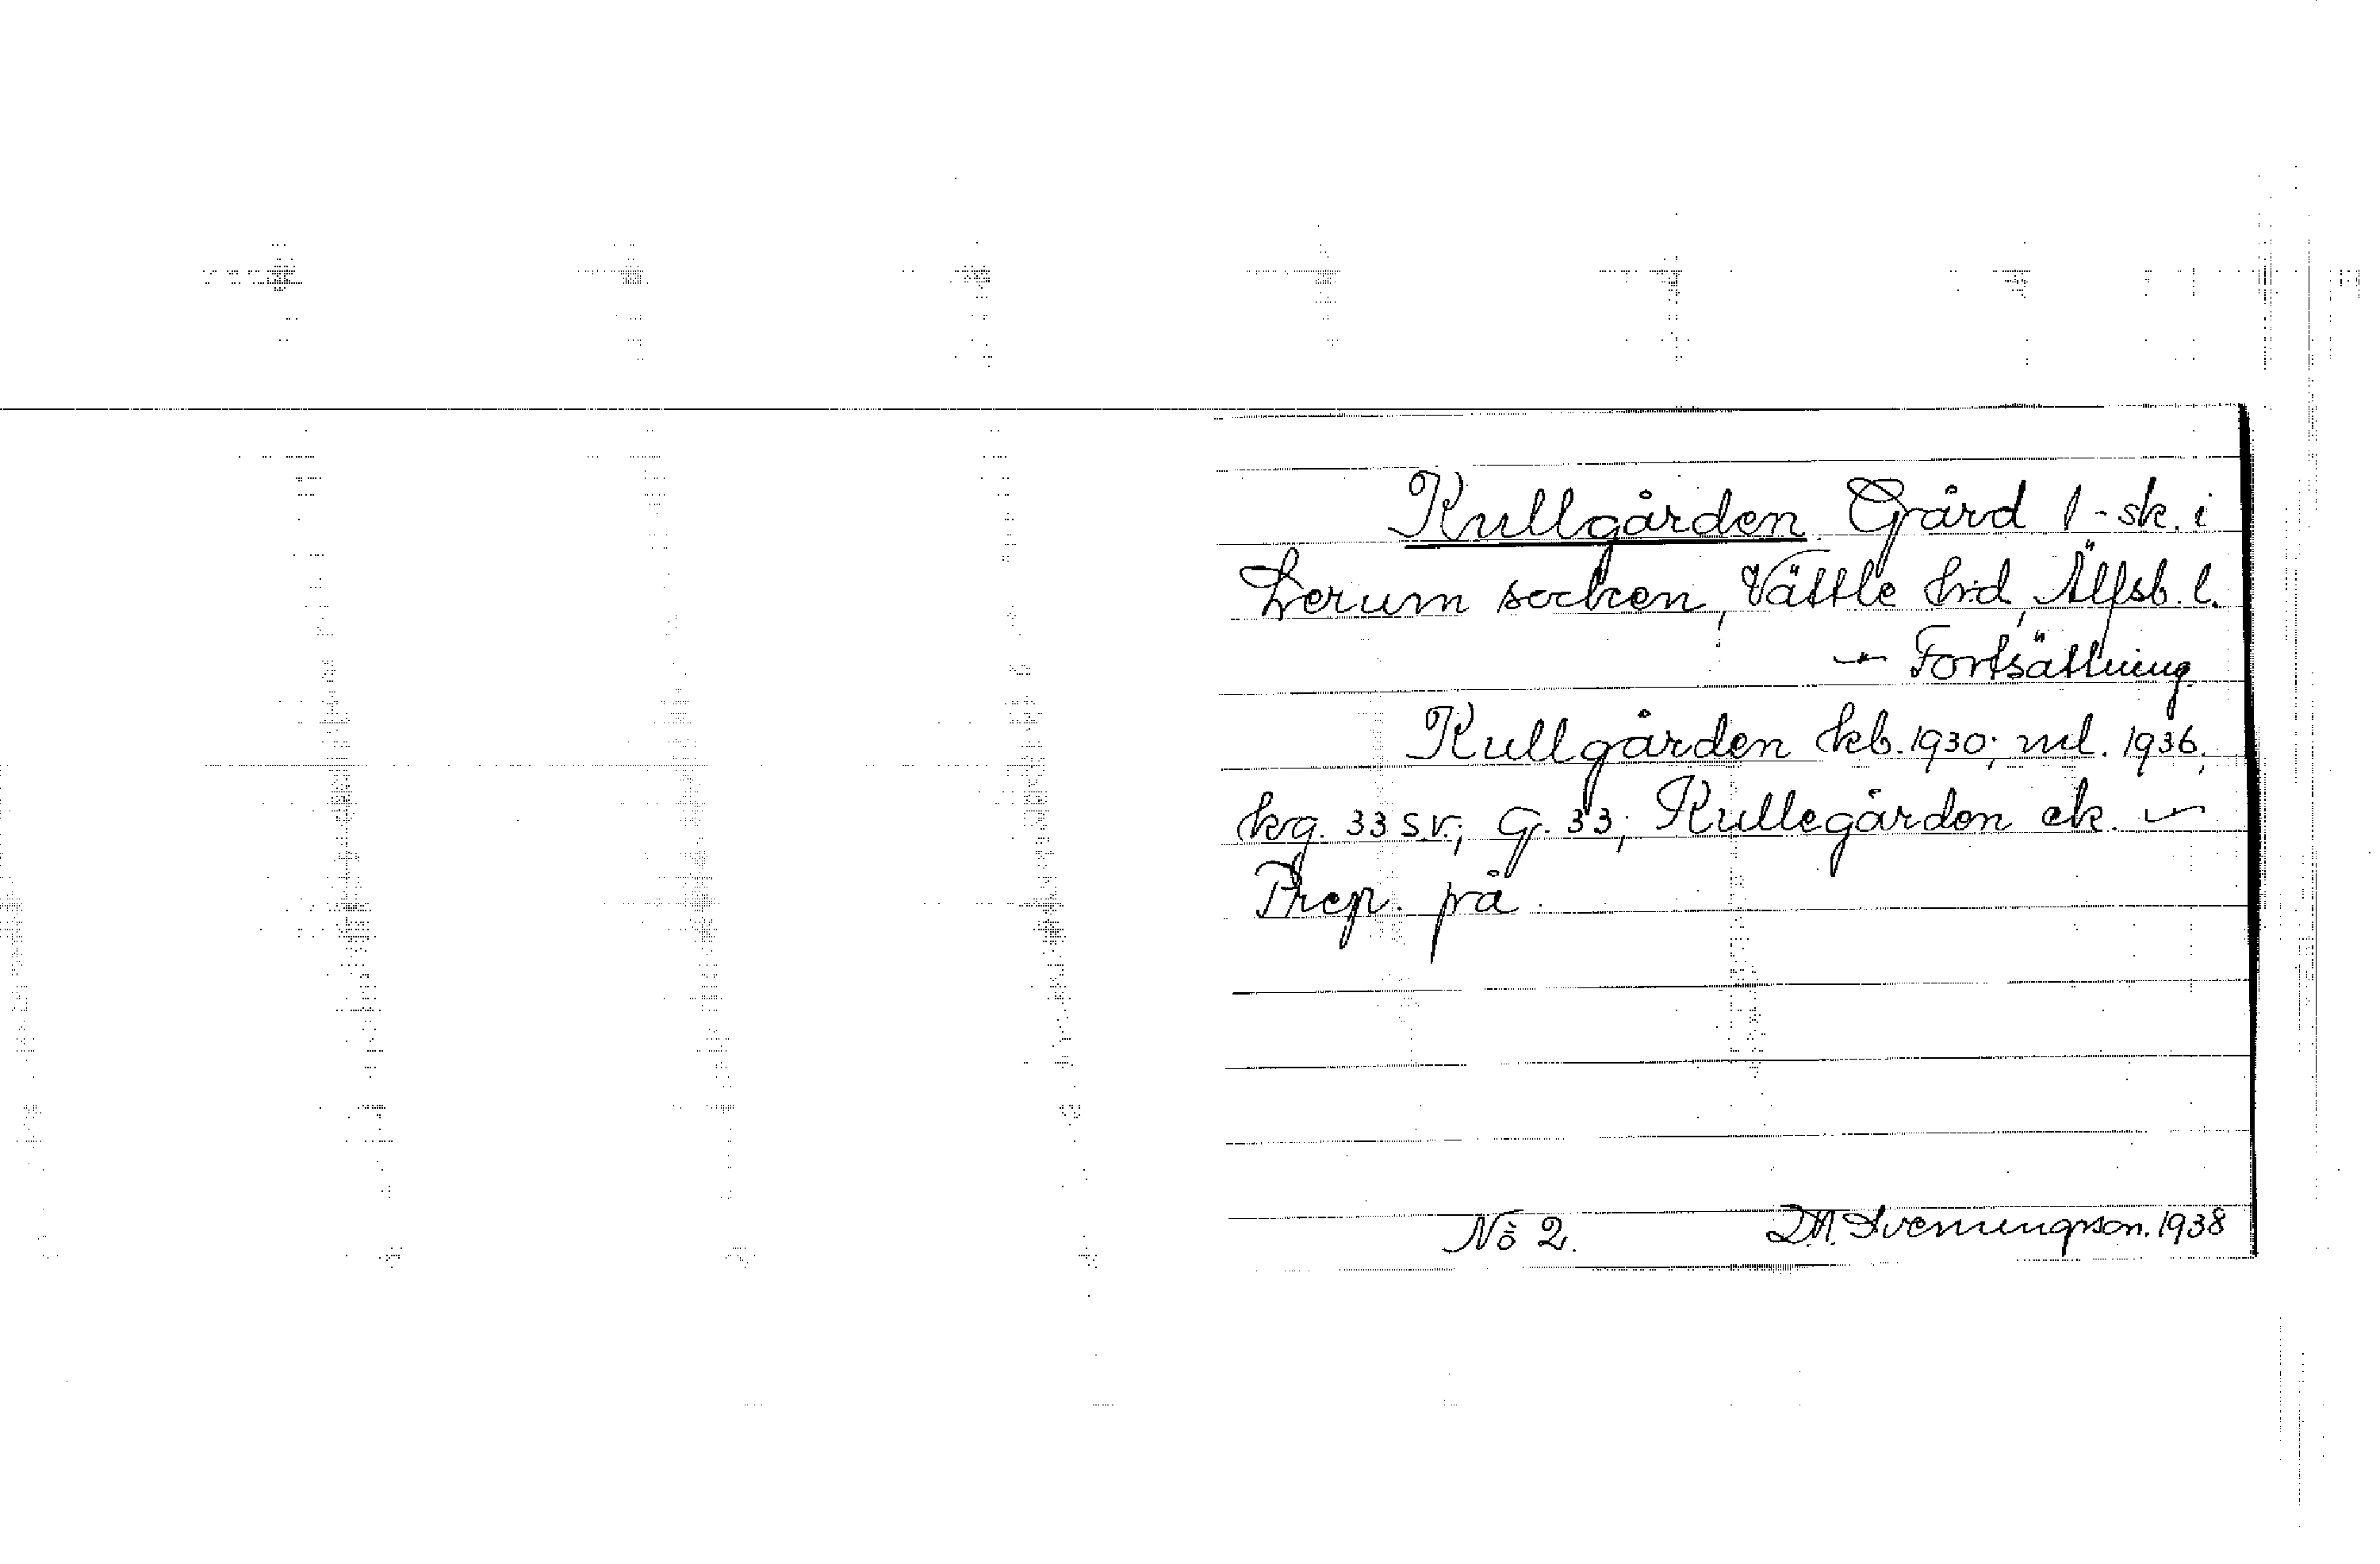 Kullgården. Gård 1-sk. i
Lerum socken, Vättle hrd, Älfsb. l.
— Fortsättning.
Kullgården kb. 1930; ml. 1936,
kg. 33 SV; G. 33; Kullegården ek. —
Prep. på.
No 2. D.A. Svenningson. 1938